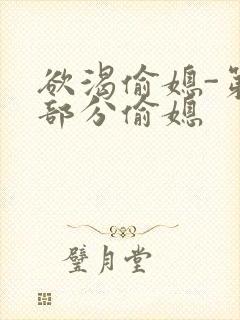 欲渴偷媳-第
部分偷媳
璧月堂